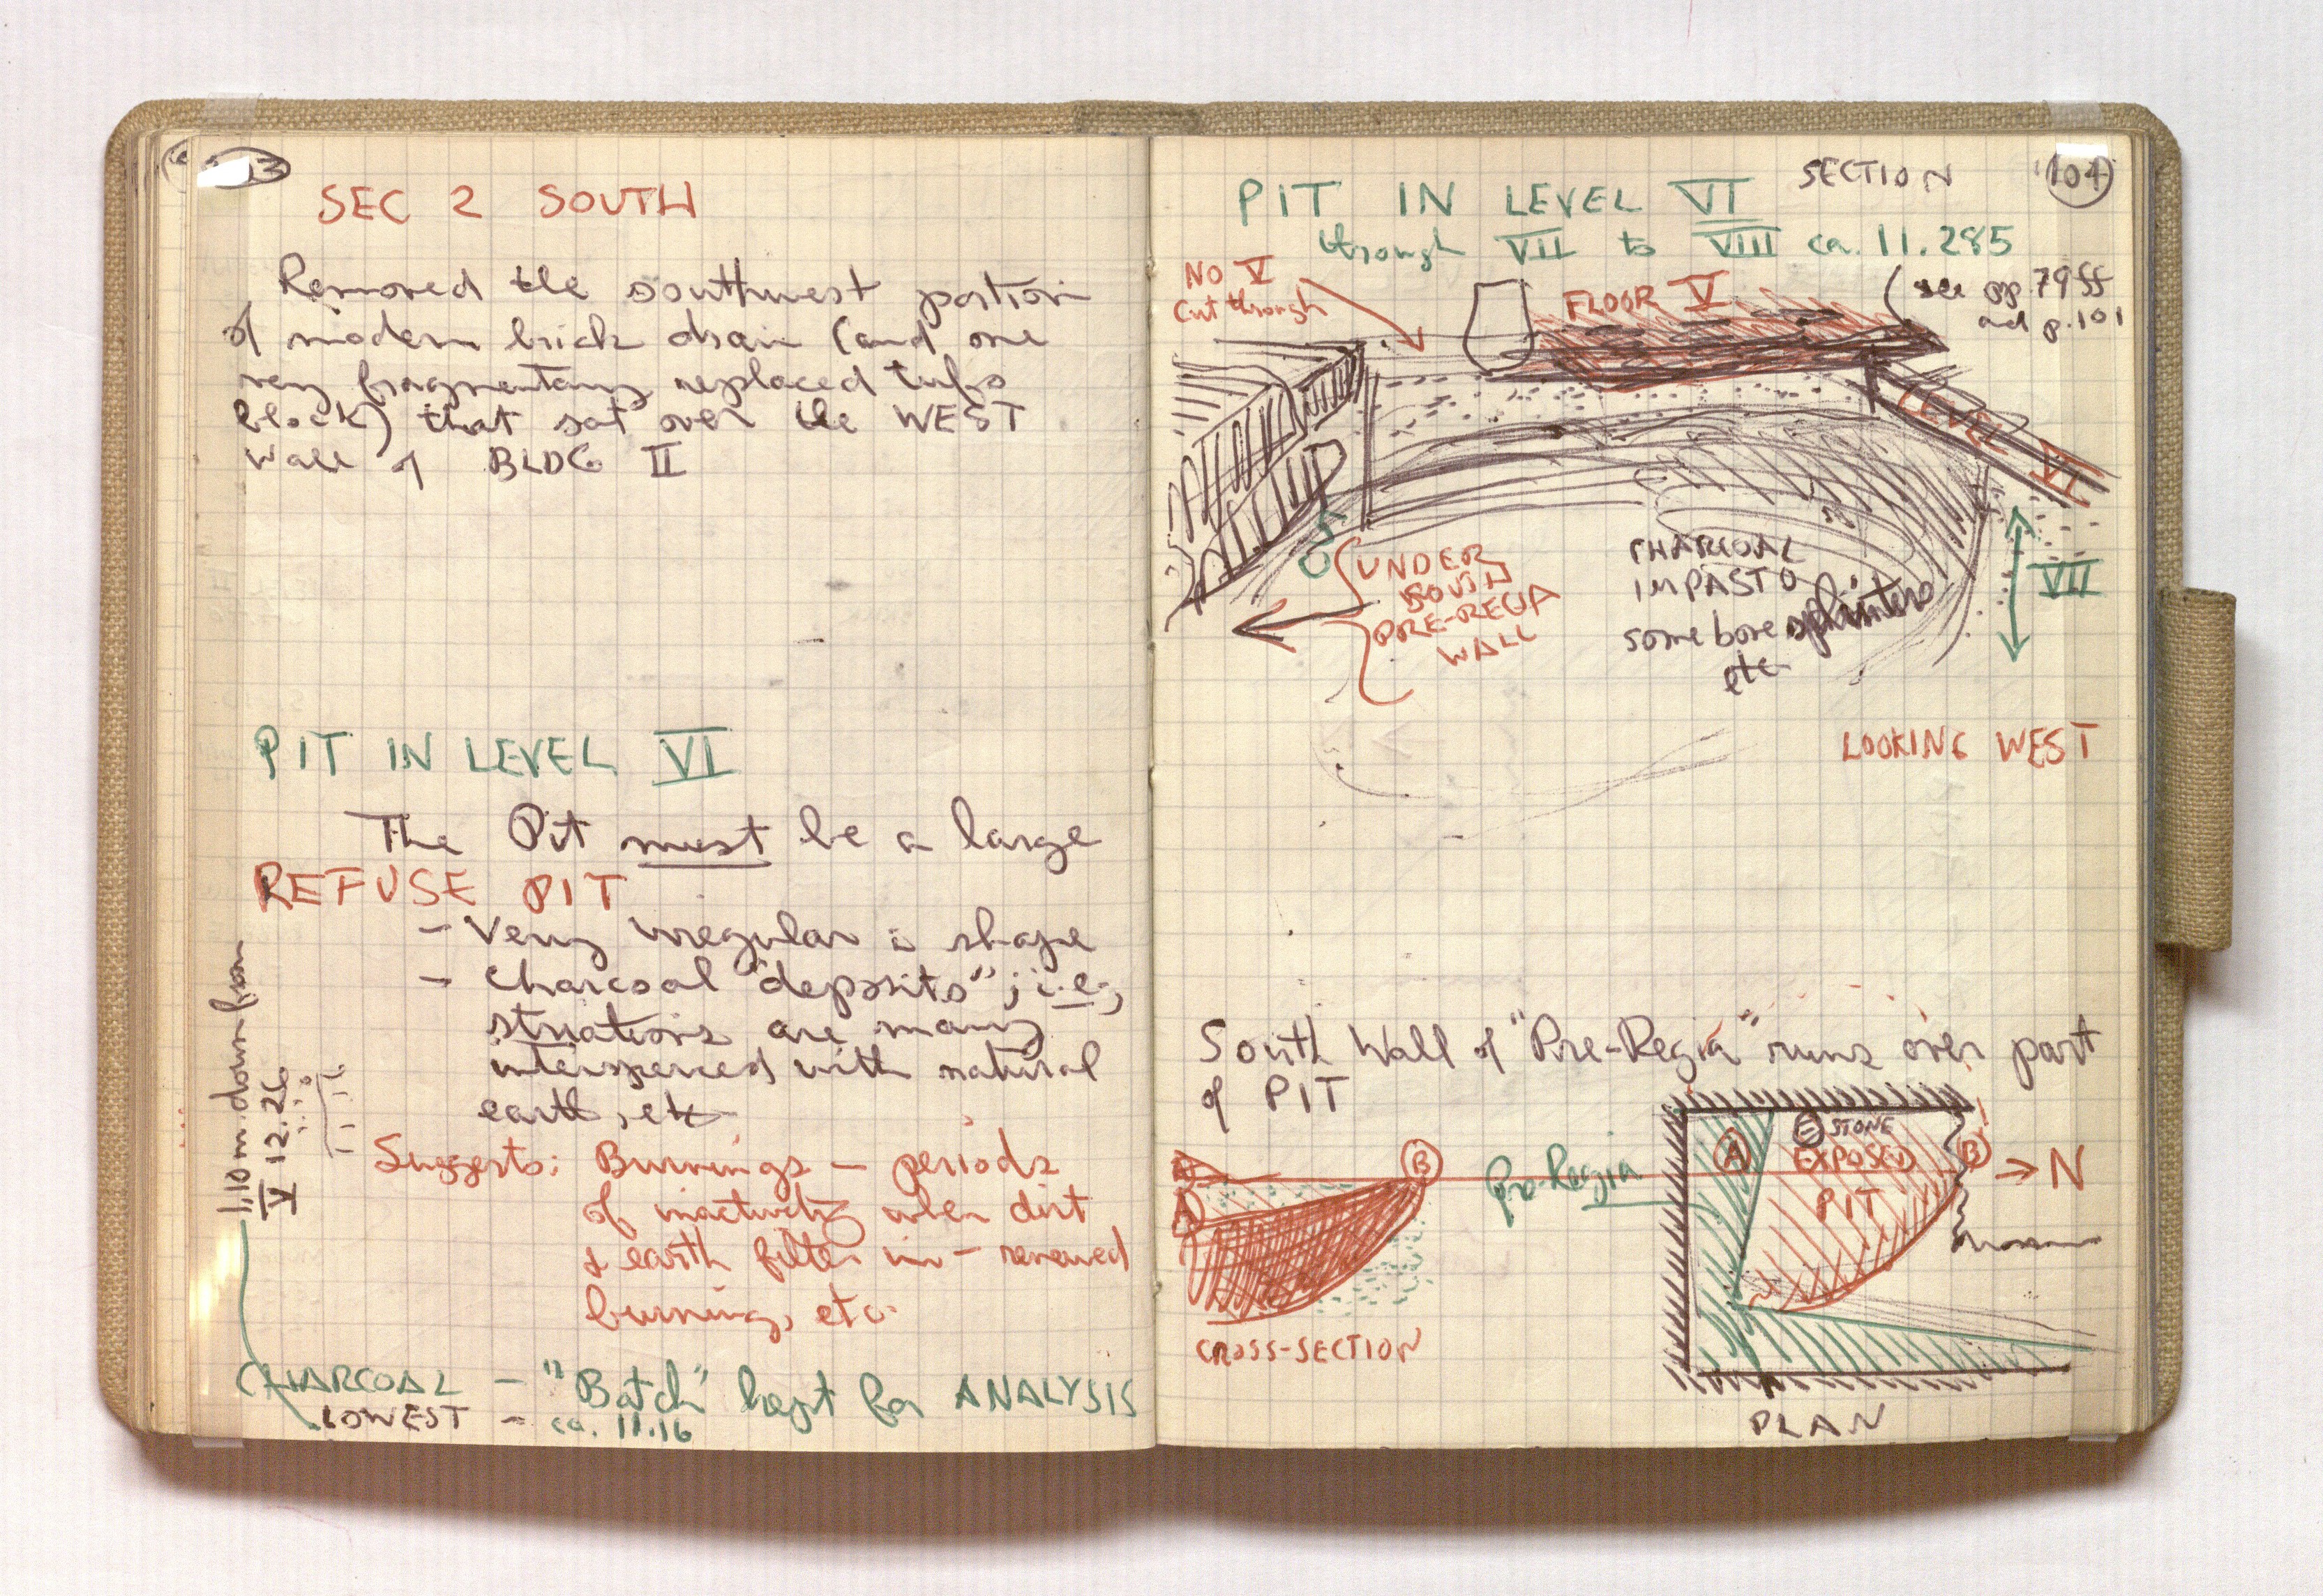 SEC 2 SOUTH
Removed the southwest portion
of modern brick drain (and one
very fragmentary replaced tufo
block) that sat over the WEST
wall of BLDG II
PIT IN LEVEL VI
The Pit must be a large
REFUSE PIT
- Very irregular in shape
- Charcoal "deposits"; i.e.,
striations are many
interspersed with natural
earth, etc
Suggests: Burnings - periods
of inactivity when dirt
& earth filter in - renewed
burning, etc.
1.10 m. down from
V 12.26
11.16
CHARCOAL - "Batch" kept for ANALYSIS
LOWEST - ca. 11.16
SECTION
104
PIT IN LEVEL VI
through VII to VIII ca. 11.285
(see pp 79ff
and p. 101
NO V
Cut through
FLOOR V
LEVEL VI
VII
UNDER
SOUTH
PRE-REGIA
WALL
CHARCOAL
IMPASTO
some bone splinters
etc
LOOKING WEST
South Wall of "Pre-Regia" runs over part
of PIT
A
B
CROSS-SECTION
Pre-Regia
A
STONE
EXPOSED
PIT
B
→ N
PLAN